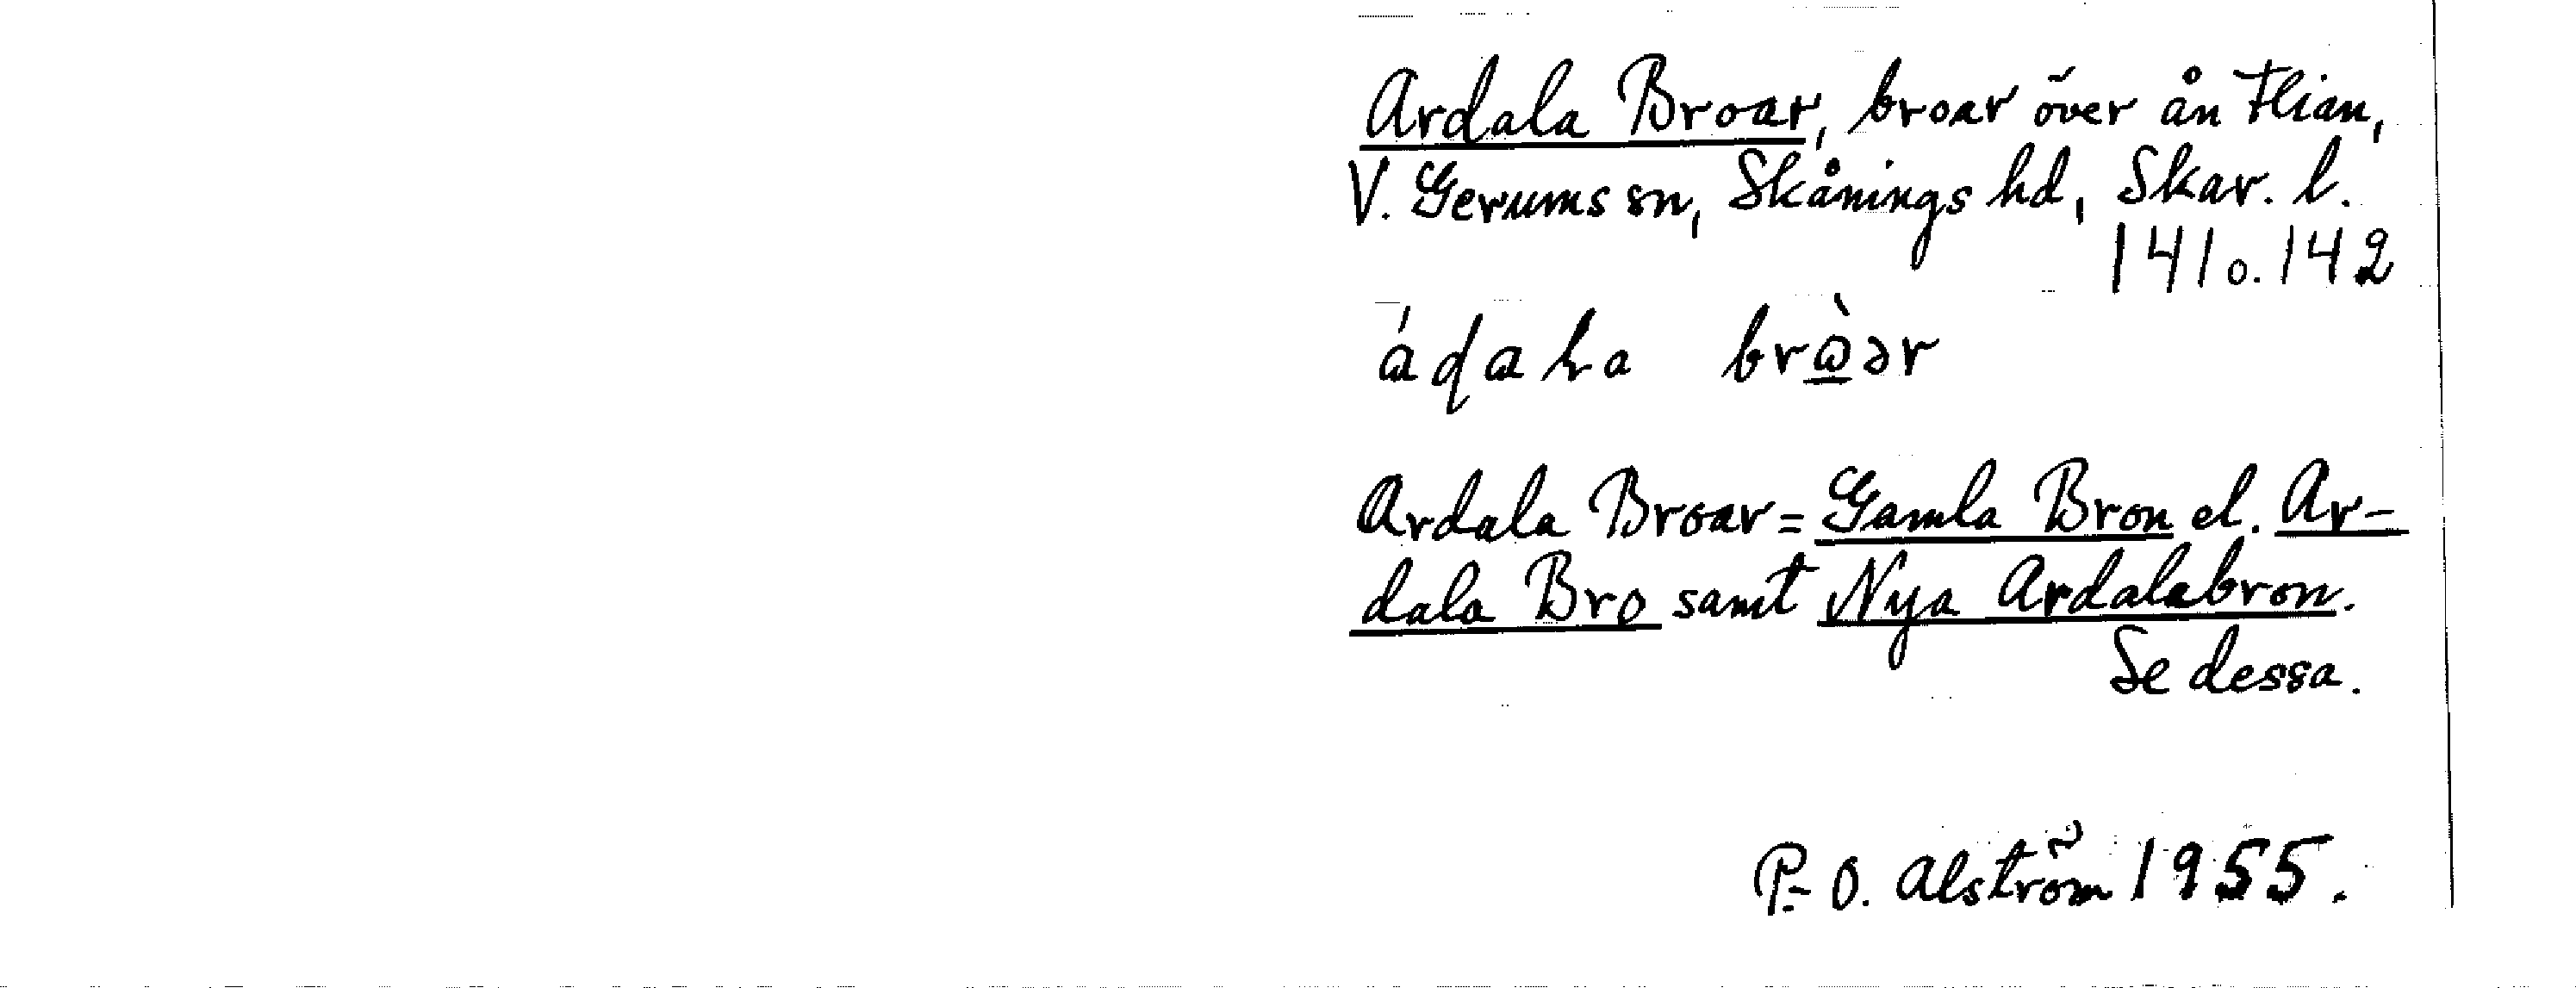 Ardala Broar, broar över ån Flian,
V. Gerums sn, Skånings hd, Skar. l.
141 o. 142
Ardala Broar = Gamla Bron el. Ar-
dala Bro samt Nya Ardalabron.
Se dessa.
P.-O. Alström 1955.